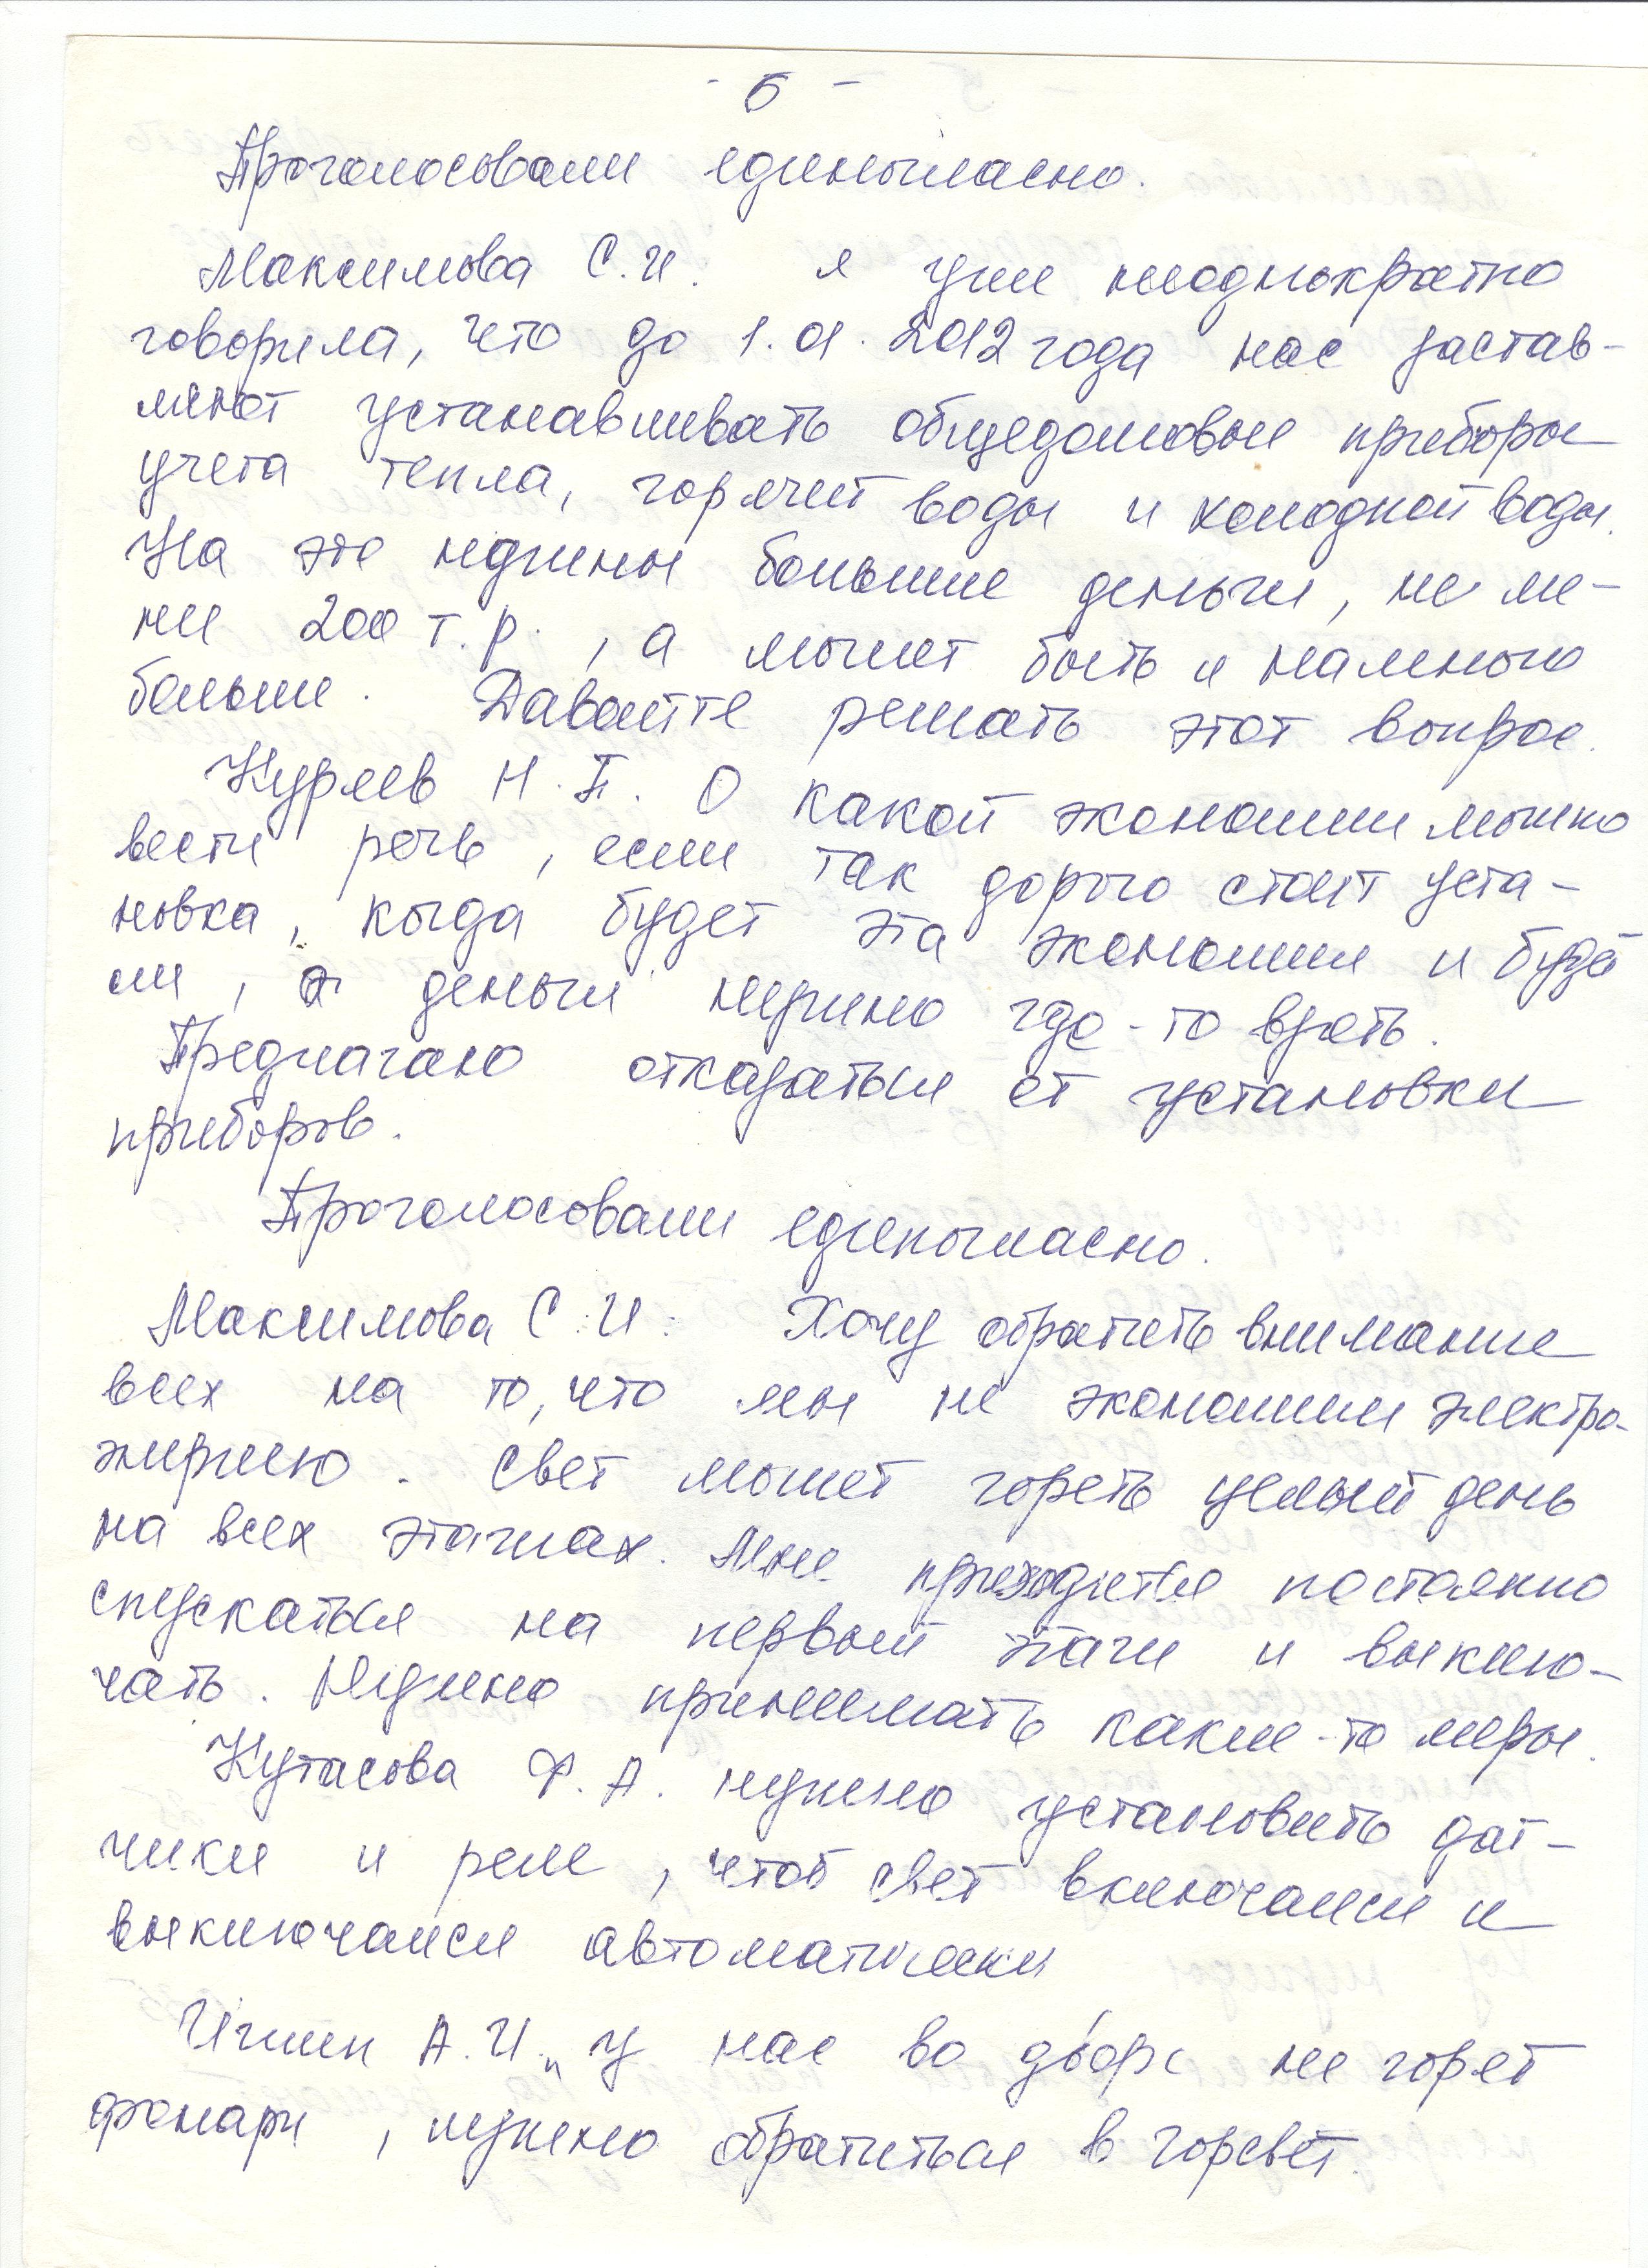 - 6 -
Проголосовали единогласно.
Максимова С.И. я уже неоднократно
говорила, что до 1.01.2012 года нас застав-
ляют устанавливать общедомовые приборы
учета тепла, горячей воды и холодной воды.
На это нужны большие деньги, не ме-
нее 200 т.р., а может быть и намного
больше. Давайте решать этот вопрос.
Куряев Н.П. О какой экономии можно
вести речь, если так дорого стоит уста-
новка, когда будет эта экономия и будет
ли, а деньги нужно где-то взять.
Предлагаю отказаться от установки
приборов.
Проголосовали единогласно.
Максимова С.И: Хочу обратить внимание
всех на то, что мы не экономим электро-
энергию. Свет может гореть целый день
на всех этажах. Мне приходится постоянно
спускаться на первый этаж и выклю-
чать. Нужно принимать какие-то меры.
Кутасова Ф.А. нужно установить дат-
чики и реле, чтоб свет включался и
выключался автоматически
Игшин А.И. „У нас во дворе не горят
фонари, нужно обратиться в горсвет.